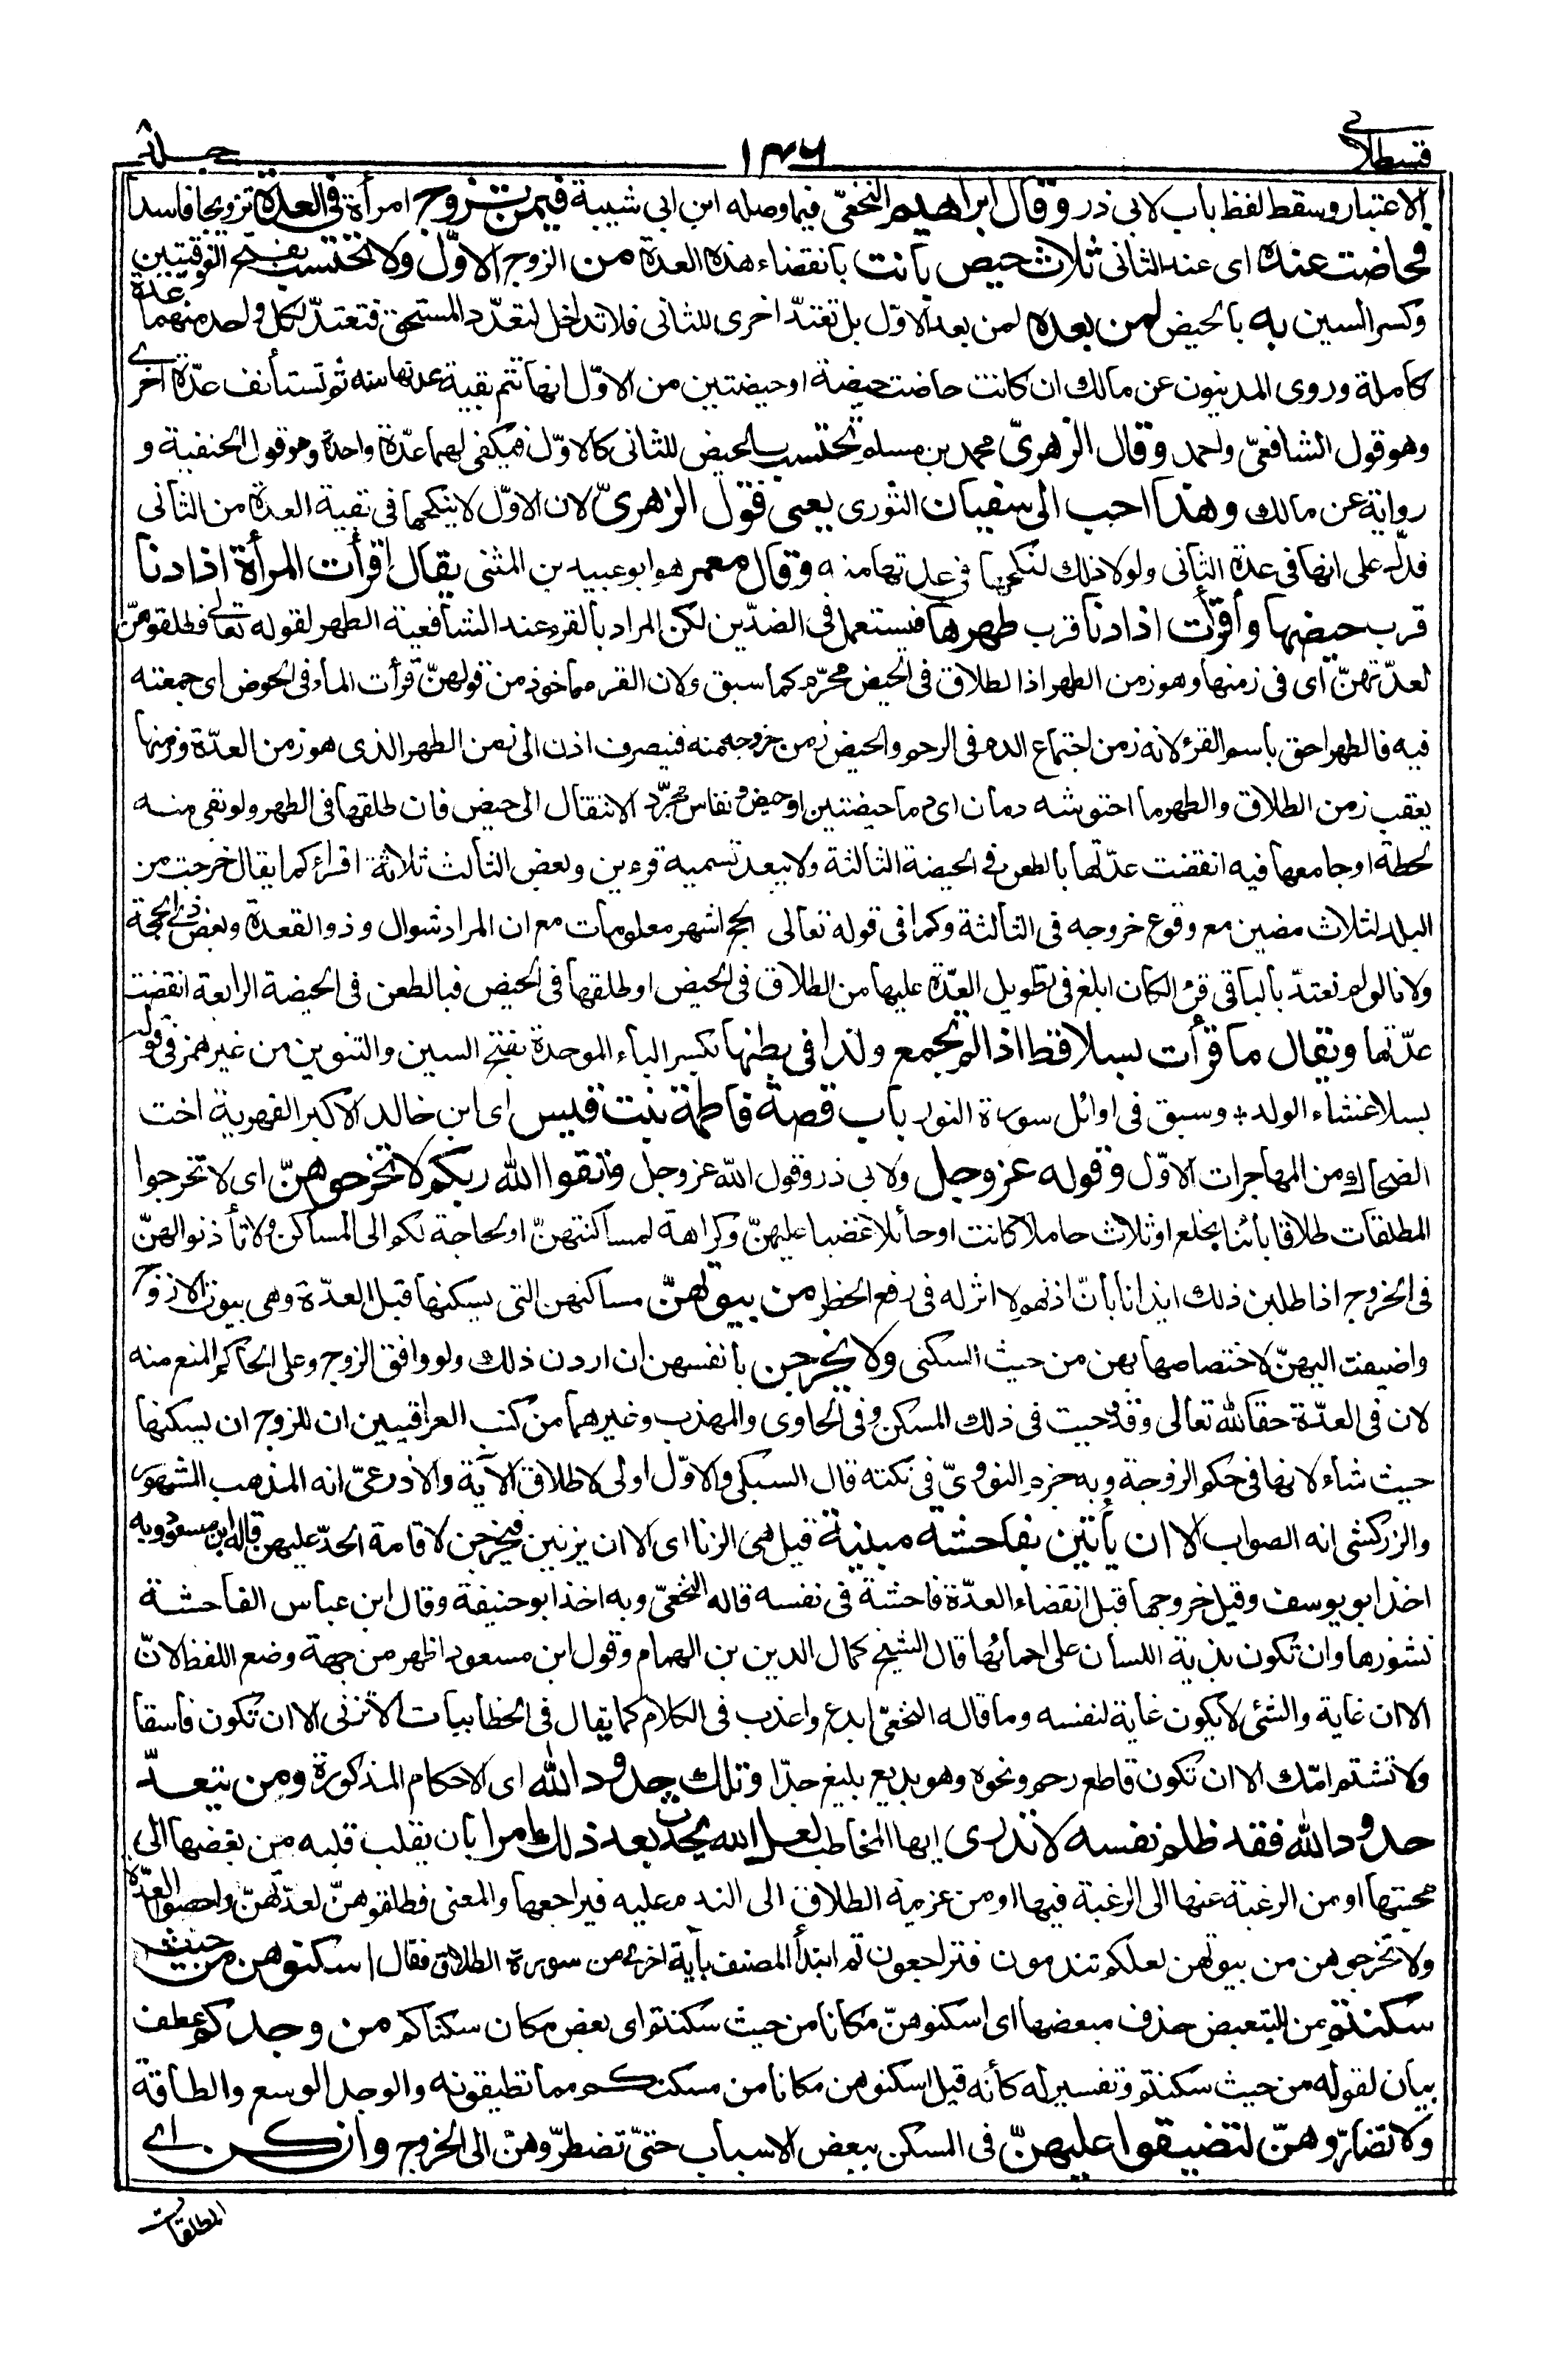 قسطلانے
١٣٦
جلد ٨
الاعتبار وسقط لفظ باب لابى ذر وقال ابراهيم النخعىّ فيما وصله ابن ابى شيبة فيمن تزوج امرأة فى العدة تزويجا فاسدا
فحاضت عنده اى عند الثانى ثلاث حيض بانت بانقضاء هذه العدة من الزوج الاوّل ولا تحتسب بفتح الفوقيتين
وكسر السين به بالحيض لمن بعده لمن بعد الاوّل بل تعتدّ اخرى للثانى فلا تداخل لتعدّد المستحق فتعتدّ لكل واحد منهما عدة
كاملة وروى المدنيون عن مالك ان كانت حاضت حيضة او حيضتين من الاوّل انها تتم بقية عدتها منه ثم تستأنف عدّة اخرے
وهو قول الشافعىّ واحمد وقال الزهرىّ محمد بن مسلم تحتسب بالحيض للثانى كالاوّل فيكفى لهما عدّة واحدة وهو قول الحنفية و
رواية عن مالك وهذا احب الى سفيان الثورى يعنى قول الزهرىّ لان الاوّل لا ينكحها فى بقية العدة من الثانى
فدلّ على انها فى عدة الثانى ولولا ذلك لنكحها فى عدتها منه وقال معمر هو ابو عبيده بن المثنى يقال اقرأت المرأة اذا دنا
قرب حيضها وأقرأت اذا دنا قرب طهرها فيستعمل فى الضدّين لكن المراد بالقرء عند الشافعية الطهر لقوله تعالى فطلقوهنّ
لعدّتهنّ اى فى زمنها وهو زمن الطهر اذ الطلاق فى الحيض محرّم كما سبق ولان القرء مأخوذ من قولهنّ قرأت الماء فى الحوض اى جمعته
فيه فالطهر احق باسم القرء لانه زمن اجتماع الدم فى الرحم والحيض زمن خروجه منه فينصرف اذن الى زمن الطهر الذى هو زمن العدّة وزمنها
يعقب زمن الطلاق والطهر ما احتوشه دمان اى دما حيضتين او حيض ونفاس مجرّد الانتقال الى حيض فان طلقها فى الطهر ولو بقى منه
لحظة او جامعها فيه انقضت عدّتها بالطعن فى الحيضة الثالثة ولا يبعد تسمية قرءين وبعض الثالث ثلاثة اقراء كما يقال خرجت من
البلد لثلاث مضين مع وقوع خروجه فى الثالثة وكما فى قوله تعالى الحج اشهر معلومات مع ان المراد شوال وذو القعدة وبعض ذى الحجة
ولانا لو لم نعتدّ بالباقى قرءا لكان ابلغ فى تطويل العدّة عليها من الطلاق فى الحيض او طلقها فى الحيض فبالطعن فى الحيضة الرابعة انقضت
عدّتها ويقال ما قرأت بسلا قط اذا لم تجمع ولدا فى بطنها بكسر الباء الموحدة بفتح السين والتنوين من غير همز فى قوله
بسلا غشاء الولد * وسبق فى اوائل سورة النور باب قصة فاطمة بنت قيس اى ابن خالد الاكبر الفهرية اخت
الضحاك من المهاجرات الاوّل وقوله عزوجل ولابى ذر وقول الله عزوجل واتقوا الله ربكم لا تخرجوهنّ اى لا تخرجوا
المطلقات طلاقا بائنا بخلع او ثلاث حاملا كانت او حائلا غضبا عليهنّ وكراهة لمساكنتهنّ او لحاجة لكم الى المساكن ولا تأذنوا لهنّ
فى الخروج اذا طلبن ذلك ايذانا بانّ اذنهم لا اثر له فى رفع الحظر من بيوتهنّ مساكنهن التى يسكنها قبل العدّة وهى بيوت الازواج
واضيفت اليهنّ لاختصاصها بهن من حيث السكنى ولا يخرجن بانفسهن ان اردن ذلك ولو وافق الزوج وعلى الحاكم المنع منه
لان فى العدّة حقا لله تعالى وقد وجبت فى ذلك المسكن وفى الحاوى والمهذب وغيرهما من كتب العراقيين ان للزوج ان يسكنها
حيث شاء لانها فى حكم الزوجة وبه جزم النووىّ فى نكته قال السبكى والاوّل اولى لاطلاق الآية والاذرعىّ انه المذهب المشهور
والزركشى انه الصواب الا ان يأتين بفاحشة مبينة قيل هى الزنا اى الا ان يزنين فيخرجن لاقامة الحدّ عليهن قاله ابن مسعود وبه
اخذ ابو يوسف وقيل خروجها قبل انقضاء العدّة فاحشة فى نفسه قاله النخعىّ وبه اخذ ابو حنيفة وقال ابن عباس الفاحشة
نشوزها وان تكون بذية اللسان على احمائها قال الشيخ كمال الدين بن الهمام وقول ابن مسعود اظهر من جهة وضع اللفظ لانّ
الا ان غاية والشئ لا يكون غاية لنفسه وما قاله النخعىّ ابدع واعذب فى الكلام كما يقال فى الخطابيات لا تزنى الا ان تكون فاسقا
ولا تشتم امّك الا ان تكون قاطع رحم ونحوه وهو بديع بليغ جدّا وتلك حدود الله اى الاحكام المذكورة ومن يتعدّ
حدود الله فقد ظلم نفسه لا تدرى ايها المخاطب لعل الله يحدث بعد ذلك امرا بان يقلب قلبه من بغضها الى
محبتها او من الرغبة عنها الى الرغبة فيها او من عزيمة الطلاق الى الندم عليه فيراجعها والمعنى فطلقوهنّ لعدّتهنّ واحصوا العدّة
ولا تخرجوهن من بيوتهن لعلكم تندمون فتراجعون ثم ابتدأ المصنف بآية اخرى من سورة الطلاق فقال اسكنوهن من حيث
سكنتم من للتبعيض حذف مبعضها اى اسكنوهنّ مكانا من حيث سكنتم اى بعض مكان سكناكم من وجدكم عطف
بيان لقوله من حيث سكنتم وتفسير له كأنه قيل اسكنوهن مكانا من مسكنكم مما تطيقونه والوجد الوسع والطاقة
ولا تضارّوهنّ لتضيقوا عليهنّ فى المسكن ببعض الاسباب حتىّ تضطرّوهنّ الى الخروج وان كن اے
المطلقات